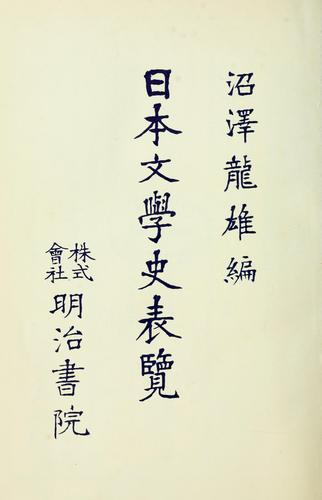 沼澤龍雄編
日本文學史表覽
株式會社
明治書院